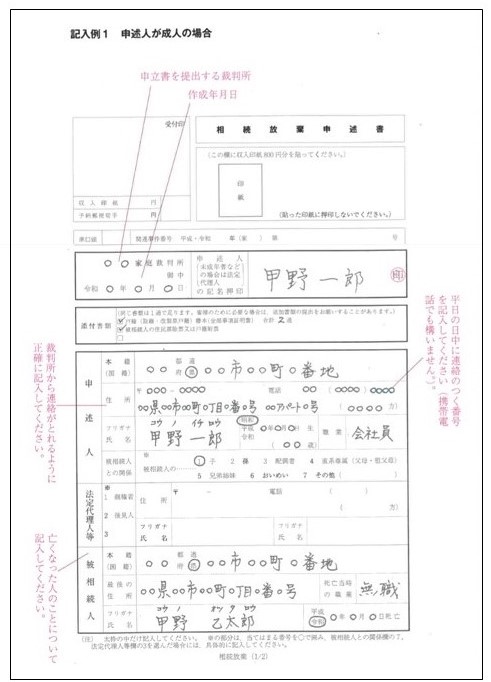 記入例1 申述人が成人の場合
申立書を提出する裁判所
作成年月日
受付印
相続放棄申述書
(この欄に収入印紙800円分を貼ってください。)
印紙
(貼った印紙に押印しないでください。)
収入印紙 円
予納郵便切手 円
準口頭 関連事件番号 平成・令和 年(家)第 号
○○家庭裁判所
御中
令和 ○年○月○日
申述人
(未成年者など
の場合は法定
代理人
の記名押印
甲野一郎 印
添付書類
(同じ書類は1通で足ります。審理のために必要な場合は、追加書類の提出をお願いすることがあります。)
☑戸籍(除籍・改製原戸籍)謄本(全部事項証明書) 合計2通
☑被相続人の住民票除票又は戸籍附票
□
平日の日中に連絡のつく番号
を記入してください(携帯電
話でも構いません。)。
申述人
本籍
(国籍)
○○ 都道府県 ○○市○○町○番地
住所
〒○○○-○○○○ 電話 ○○(○○○○)○○○○
○○県○○市○○町○丁目○番○号 ○○アパート○号 ( 方)
フリガナ
氏名
コウノ イチロウ
甲野一郎
昭和
平成
令和
○年○月○日生
(○○歳)
職業 会社員
被相続人
との関係
※
被相続人の……
1 子 2 孫 3 配偶者 4 直系尊属(父母・祖父母)
5 兄弟姉妹 6 おいめい 7 その他( )
裁判所から連絡がとれるように
正確に記入してください。
法定代理人等
※
1 親権者
2 後見人
3
住所
〒 - 電話 ( )
( 方)
フリガナ
氏名
フリガナ
氏名
被相続人
本籍
(国籍)
○○ 都道府県 ○○市○○町○番地
最後の
住所
○○県○○市○○町○丁目○番○号
死亡当時
の職業
無職
フリガナ
氏名
コウノ オツタロウ
甲野乙太郎
平成
令和
○年○月○日死亡
亡くなった人のことについて
記入してください。
(注) 太枠の中だけ記入してください。 ※の部分は、当てはまる番号を○で囲み、被相続人との関係欄の7、
法定代理人等欄の3を選んだ場合には、具体的に記入してください。
相続放棄(1/2)